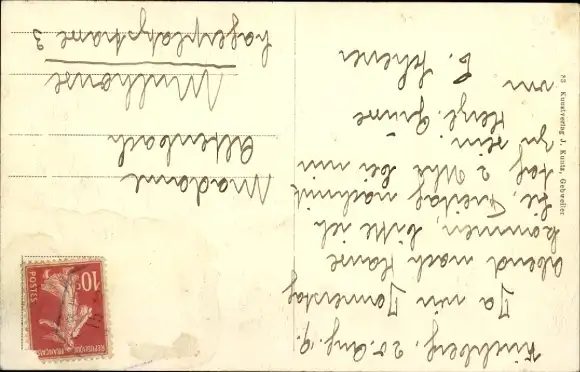 Madame
Altenbach
Mulhouse
Lagerplatzstrasse 3
Kirchberg, 20. Aug. 9.
Da wir Donnerstag
abend nach Hause
kommen, bitte ich
Sie, Freitag nachmit
tag 2 Uhr bei mir
zu sein.
Herzl. Grüsse
von
E. Scheurer
83 Kunstverlag J. Kuntz, Gebweiler
10c
POSTES
REPUBLIQUE FRANÇAISE